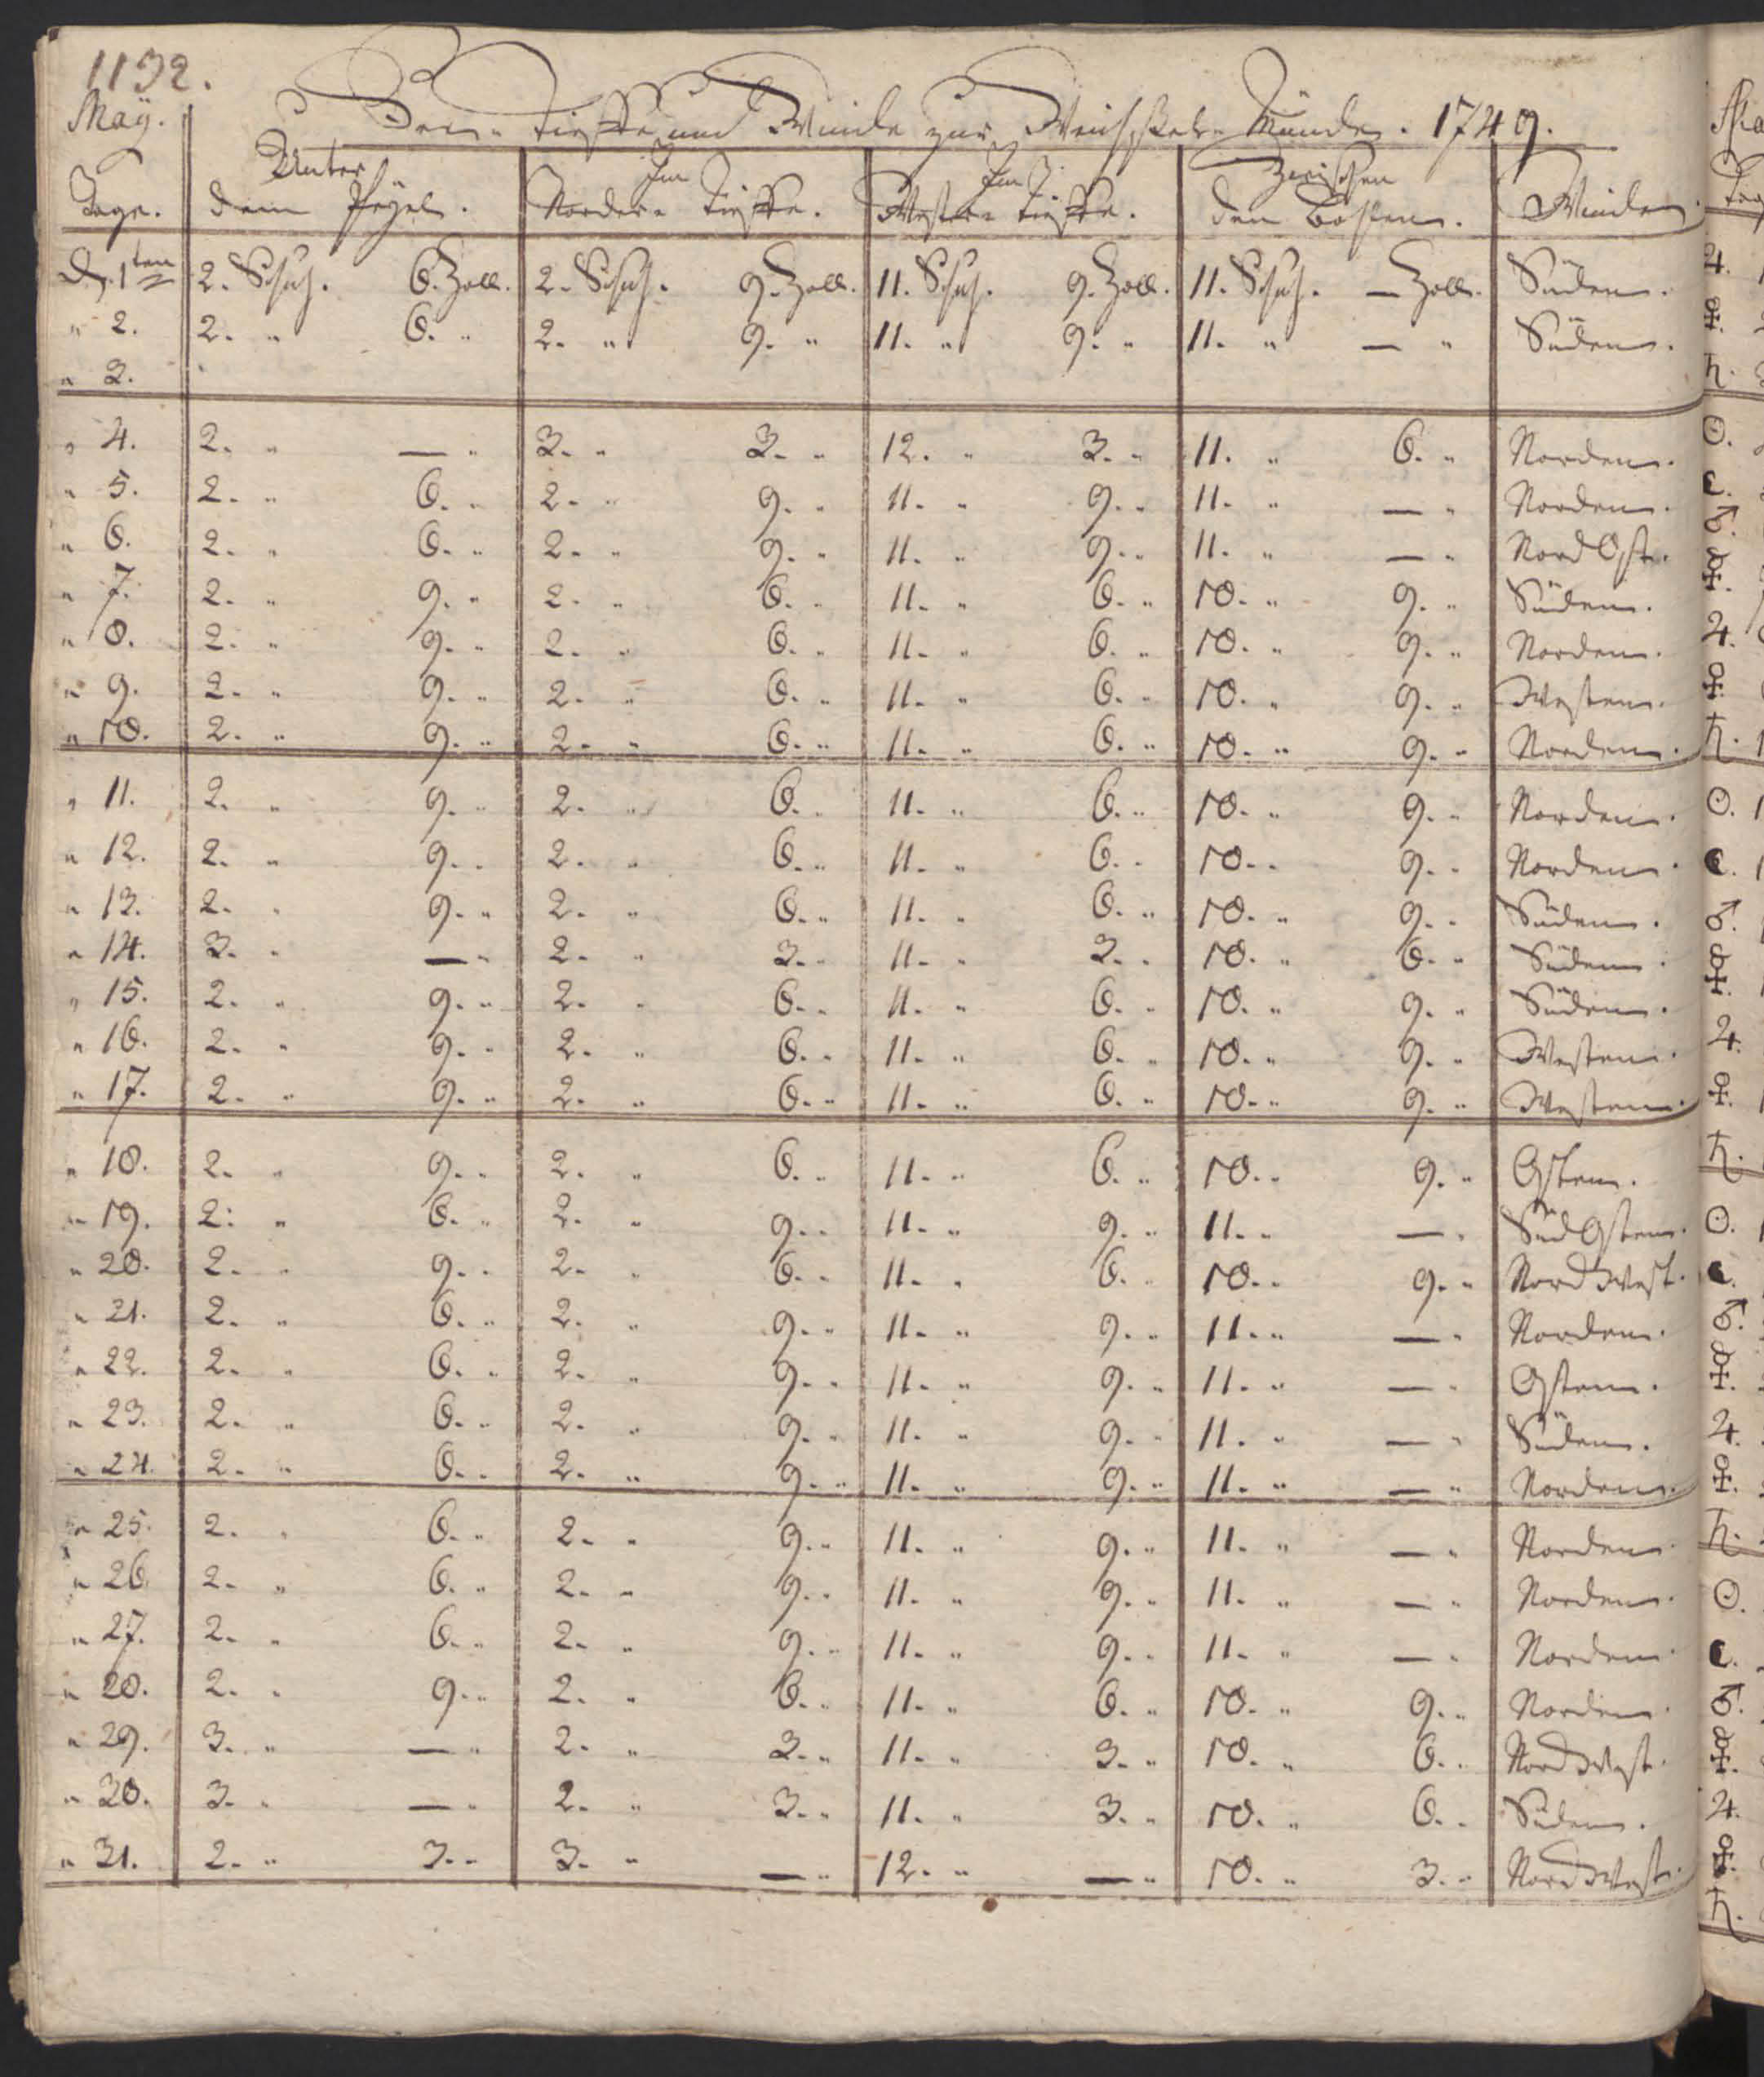 1132.
May. Seen- Tieffe und Winde zur Weichsel-Münde. 1749.
Tage. Unter dem Pegel. Im Norder- Tieffe. Im Wester- Tieffe. Zwischen den Winden.
D. 1ten 2. Schuh. 6. Zoll. 2. Schuh. 9. Zoll. 11. Schuh. 9. Zoll. 11. Schuh. — Zoll. Süden.
" 2. 2. " 6. " 2. " 9. " 11. " 9. " 11. " — " Süden.
" 3.
" 4. 2. " — " 3. " 3. " 12. " 3. " 11. " 6. " Norden.
" 5. 2. " 6. " 2. " 9. " 11. " 9. " 11. " — " Norden.
" 6. 2. " 6. " 2. " 9. " 11. " 9. " 11. " — " Nord Ost.
" 7. 2. " 9. " 2. " 6. " 11. " 6. " 10. " 9. " Süden.
" 8. 2. " 9. " 2. " 6. " 11. " 6. " 10. " 9. " Norden.
" 9. 2. " 9. " 2. " 6. " 11. " 6. " 10. " 9. " Westen.
" 10. 2. " 9. " 2. " 6. " 11. " 6. " 10. " 9. " Norden.
" 11. 2. " 9. " 2. " 6. " 11. " 6. " 10. " 9. " Norden.
" 12. 2. " 9. " 2. " 6. " 11. " 6. " 10. " 9. " Norden.
" 13. 2. " 9. " 2. " 6. " 11. " 6. " 10. " 9. " Süden.
" 14. 3. " — " 2. " 3. " 11. " 3. " 10. " 6. " Süden.
" 15. 2. " 9. " 2. " 6. " 11. " 6. " 10. " 9. " Süden.
" 16. 2. " 9. " 2. " 6. " 11. " 6. " 10. " 9. " Westen.
" 17. 2. " 9. " 2. " 6. " 11. " 6. " 10. " 9. " Westen.
" 18. 2. " 9. " 2. " 6. " 11. " 6. " 10. " 9. " Osten.
" 19. 2. " 6. " 2. " 9. " 11. " 9. " 11. " — " Süd Osten.
" 20. 2. " 9. " 2. " 6. " 11. " 6. " 10. " 9. " Nord West.
" 21. 2. " 6. " 2. " 9. " 11. " 9. " 11. " — " Norden.
" 22. 2. " 6. " 2. " 9. " 11. " 9. " 11. " — " Osten.
" 23. 2. " 6. " 2. " 9. " 11. " 9. " 11. " — " Süden.
" 24. 2. " 6. " 2. " 9. " 11. " 9. " 11. " — " Norden.
" 25. 2. " 6. " 2. " 9. " 11. " 9. " 11. " — " Norden.
" 26. 2. " 6. " 2. " 9. " 11. " 9. " 11. " — " Norden.
" 27. 2. " 6. " 2. " 9. " 11. " 9. " 11. " — " Norden.
" 28. 2. " 9. " 2. " 6. " 11. " 6. " 10. " 9. " Norden.
" 29. 3. " — " 2. " 3. " 11. " 3. " 10. " 6. " Nord West.
" 30. 3. " — " 2. " 3. " 11. " 3. " 10. " 6. " Süden.
" 31. 2. " 3. " 3. " — " 12. " — " 10. " 3. " Nord West.